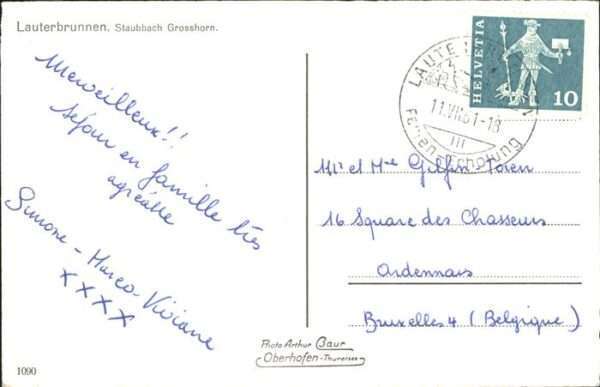 Lauterbrunnen. Staubbach Grosshorn.
Merveilleux!!
séjour en famille très
agréable
Simone - Marco - Viviane
xxxx
HELVETIA
10
LAUTE
11.VII.61-18
Ferien Erholung
Mr et Mme
16 Square des Chasseurs
Ardennais
Bruxelles 4 (Belgique)
Photo Arthur Baur
Oberhofen-Thunersee
1090